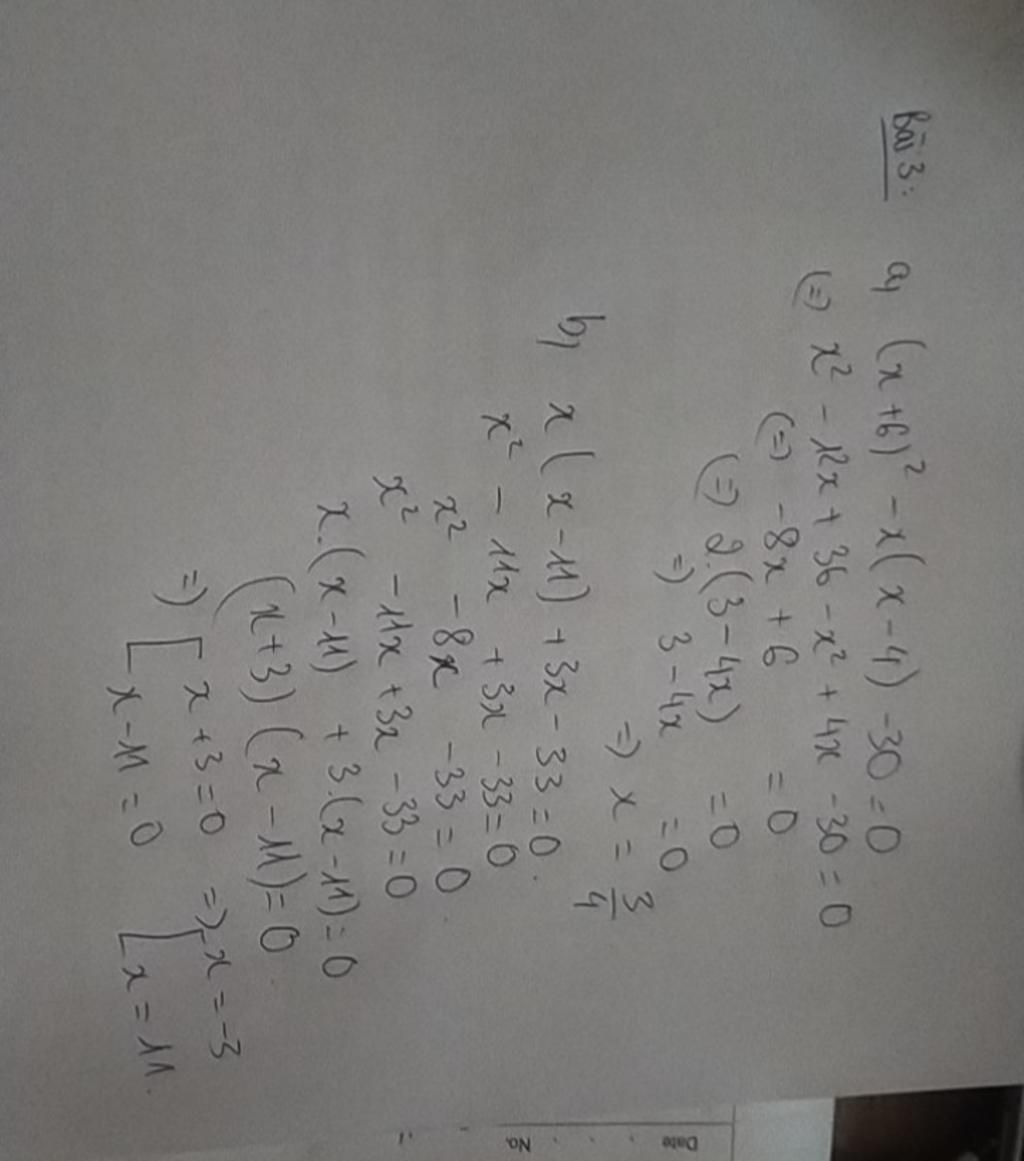 Bài 3:
a, (x+6)² - x(x-4) -30=0
(=) x² - 12x + 36 - x² + 4x -30=0
(=) -8x + 6 = 0
(=) 2.(3-4x) = 0
=) 3-4x = 0
=) x = 3/4
b, x(x-11) +3x-33=0.
x² - 11x +3x -33=0
x² -8x -33=0.
x² -11x+3x -33=0
x.(x-11) + 3.(x-11)=0
(x+3)(x-11)=0.
=) [x+3=0 =) [x=-3
x-11=0 x=11.
Date
No.